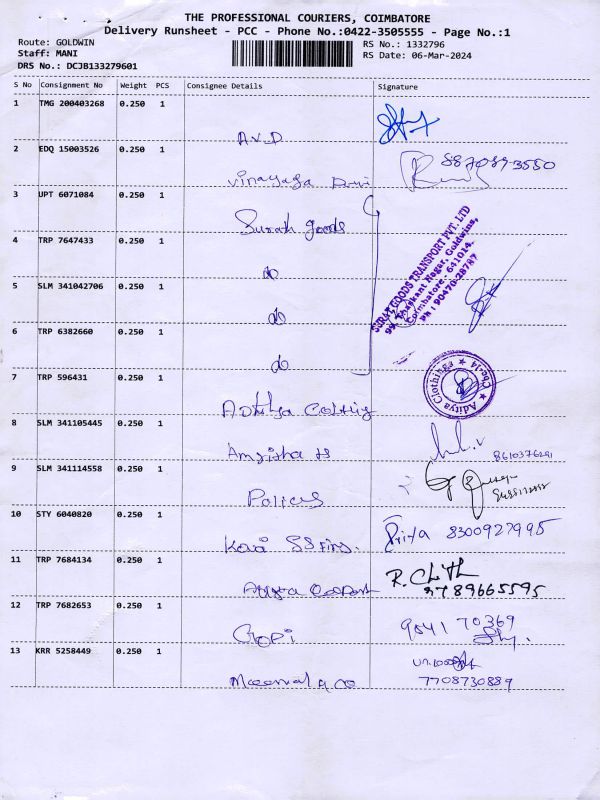 THE PROFESSIONAL COURIERS, COIMBATORE
Delivery Runsheet - PCC - Phone No.:0422-3505555 - Page No.:1
Route: GOLDWIN
Staff: MANI
DRS No.: DCJB133279601
RS No.: 1332796
RS Date: 06-Mar-2024
S No Consignment No Weight PCS Consignee Details Signature
1 TMG 200403268 0.250 1
A.V.D
2 EDQ 15003526 0.250 1
Vinayaga
3 UPT 6071084 0.250 1
Surah goods
4 TRP 7647433 0.250 1
do
5 SLM 341042706 0.250 1
do
6 TRP 6382660 0.250 1
do
SURAT GOODS TRANSPORT PVT. LTD
Nagar, Goldwins,
Coimbatore - 641014.
Ph : 90470-28787
7 TRP 596431 0.250 1
Aditya Clothings ★ Cbe-14 ★
8 SLM 341105445 0.250 1
8610376291
9 SLM 341114558 0.250 1
Polices
10 STY 6040820 0.250 1
Priya 8300927995
11 TRP 7684134 0.250 1
R. Chith
9789665595
12 TRP 7682653 0.250 1
Gopi
9541 70369
13 KRR 5258449 0.250 1
7708730889